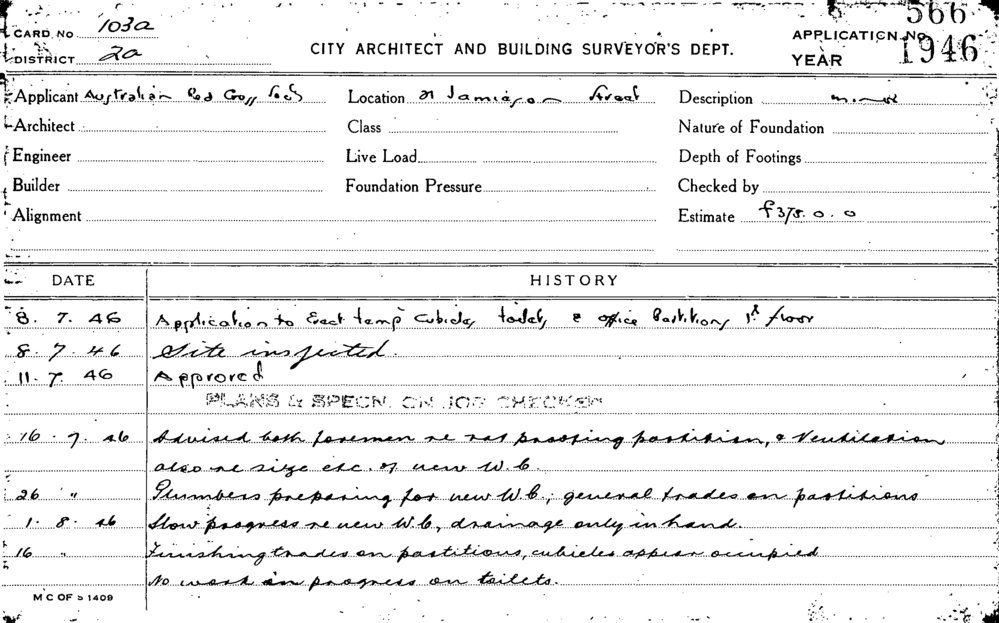 566
CARD. No 103a
CITY ARCHITECT AND BUILDING SURVEYOR'S DEPT.
APPLICATION No
DISTRICT 2a
YEAR 1946
Applicant Australian Red Cross Socy Location Jamieson Street Description minor
Architect Class Nature of Foundation
Engineer Live Load Depth of Footings
Builder Foundation Pressure Checked by
Alignment Estimate £375.0.0
DATE HISTORY
8. 7. 46 Application to Erect temp cubicles toilets & office Partitions 1st floor
8. 7. 46 Site inspected.
11. 7. 46 Approved
PLANS & SPECN. ON JOB CHECKED
16. 7. 46 Advised both foremen re rat proofing partition, & Ventilation
also re size etc. of new W.C.
26 " Plumbers preparing for new W.C.; general trades on partitions
1. 8. 46 Slow progress re new W.C, drainage only in hand.
16 " Finishing trades on partitions, cubicles appear occupied
No work in progress on toilets.
M C OF S 1409